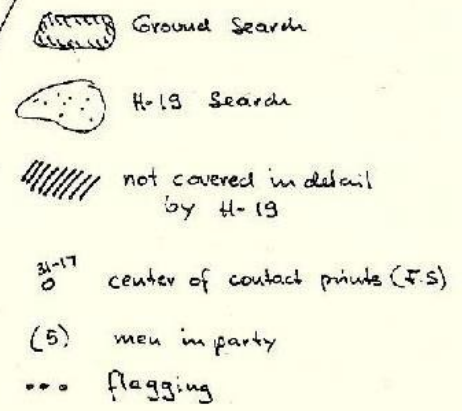 Ground Search
H-19 Search
not covered in detail
by H-19
31-17
center of contact prints (F.S)
(5) men in party
flagging